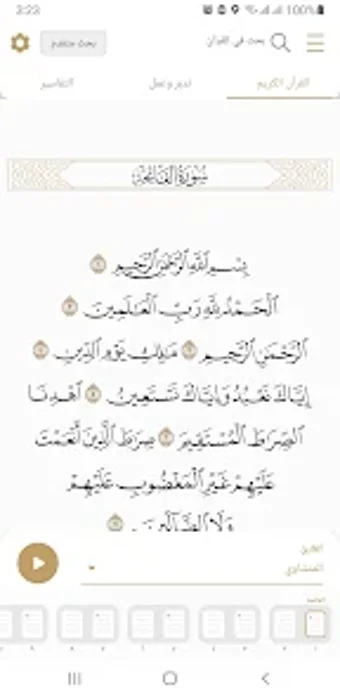 3:23
100%
بحث في القرآن
بحث متقدم
القرآن الكريم
تدبر وعمل
التفاسير
سُورَةُ الْفَاتِحَةِ
بِسْمِ ٱللَّهِ ٱلرَّحْمَٰنِ ٱلرَّحِيمِ ١
ٱلْحَمْدُ لِلَّهِ رَبِّ ٱلْعَٰلَمِينَ ٢
ٱلرَّحْمَٰنِ ٱلرَّحِيمِ ٣ مَٰلِكِ يَوْمِ ٱلدِّينِ ٤
إِيَّاكَ نَعْبُدُ وَإِيَّاكَ نَسْتَعِينُ ٥ ٱهْدِنَا
ٱلصِّرَٰطَ ٱلْمُسْتَقِيمَ ٦ صِرَٰطَ ٱلَّذِينَ أَنْعَمْتَ
عَلَيْهِمْ غَيْرِ ٱلْمَغْضُوبِ عَلَيْهِمْ
وَلَا ٱلضَّآلِّينَ ٧
القارئ
المنشاوي